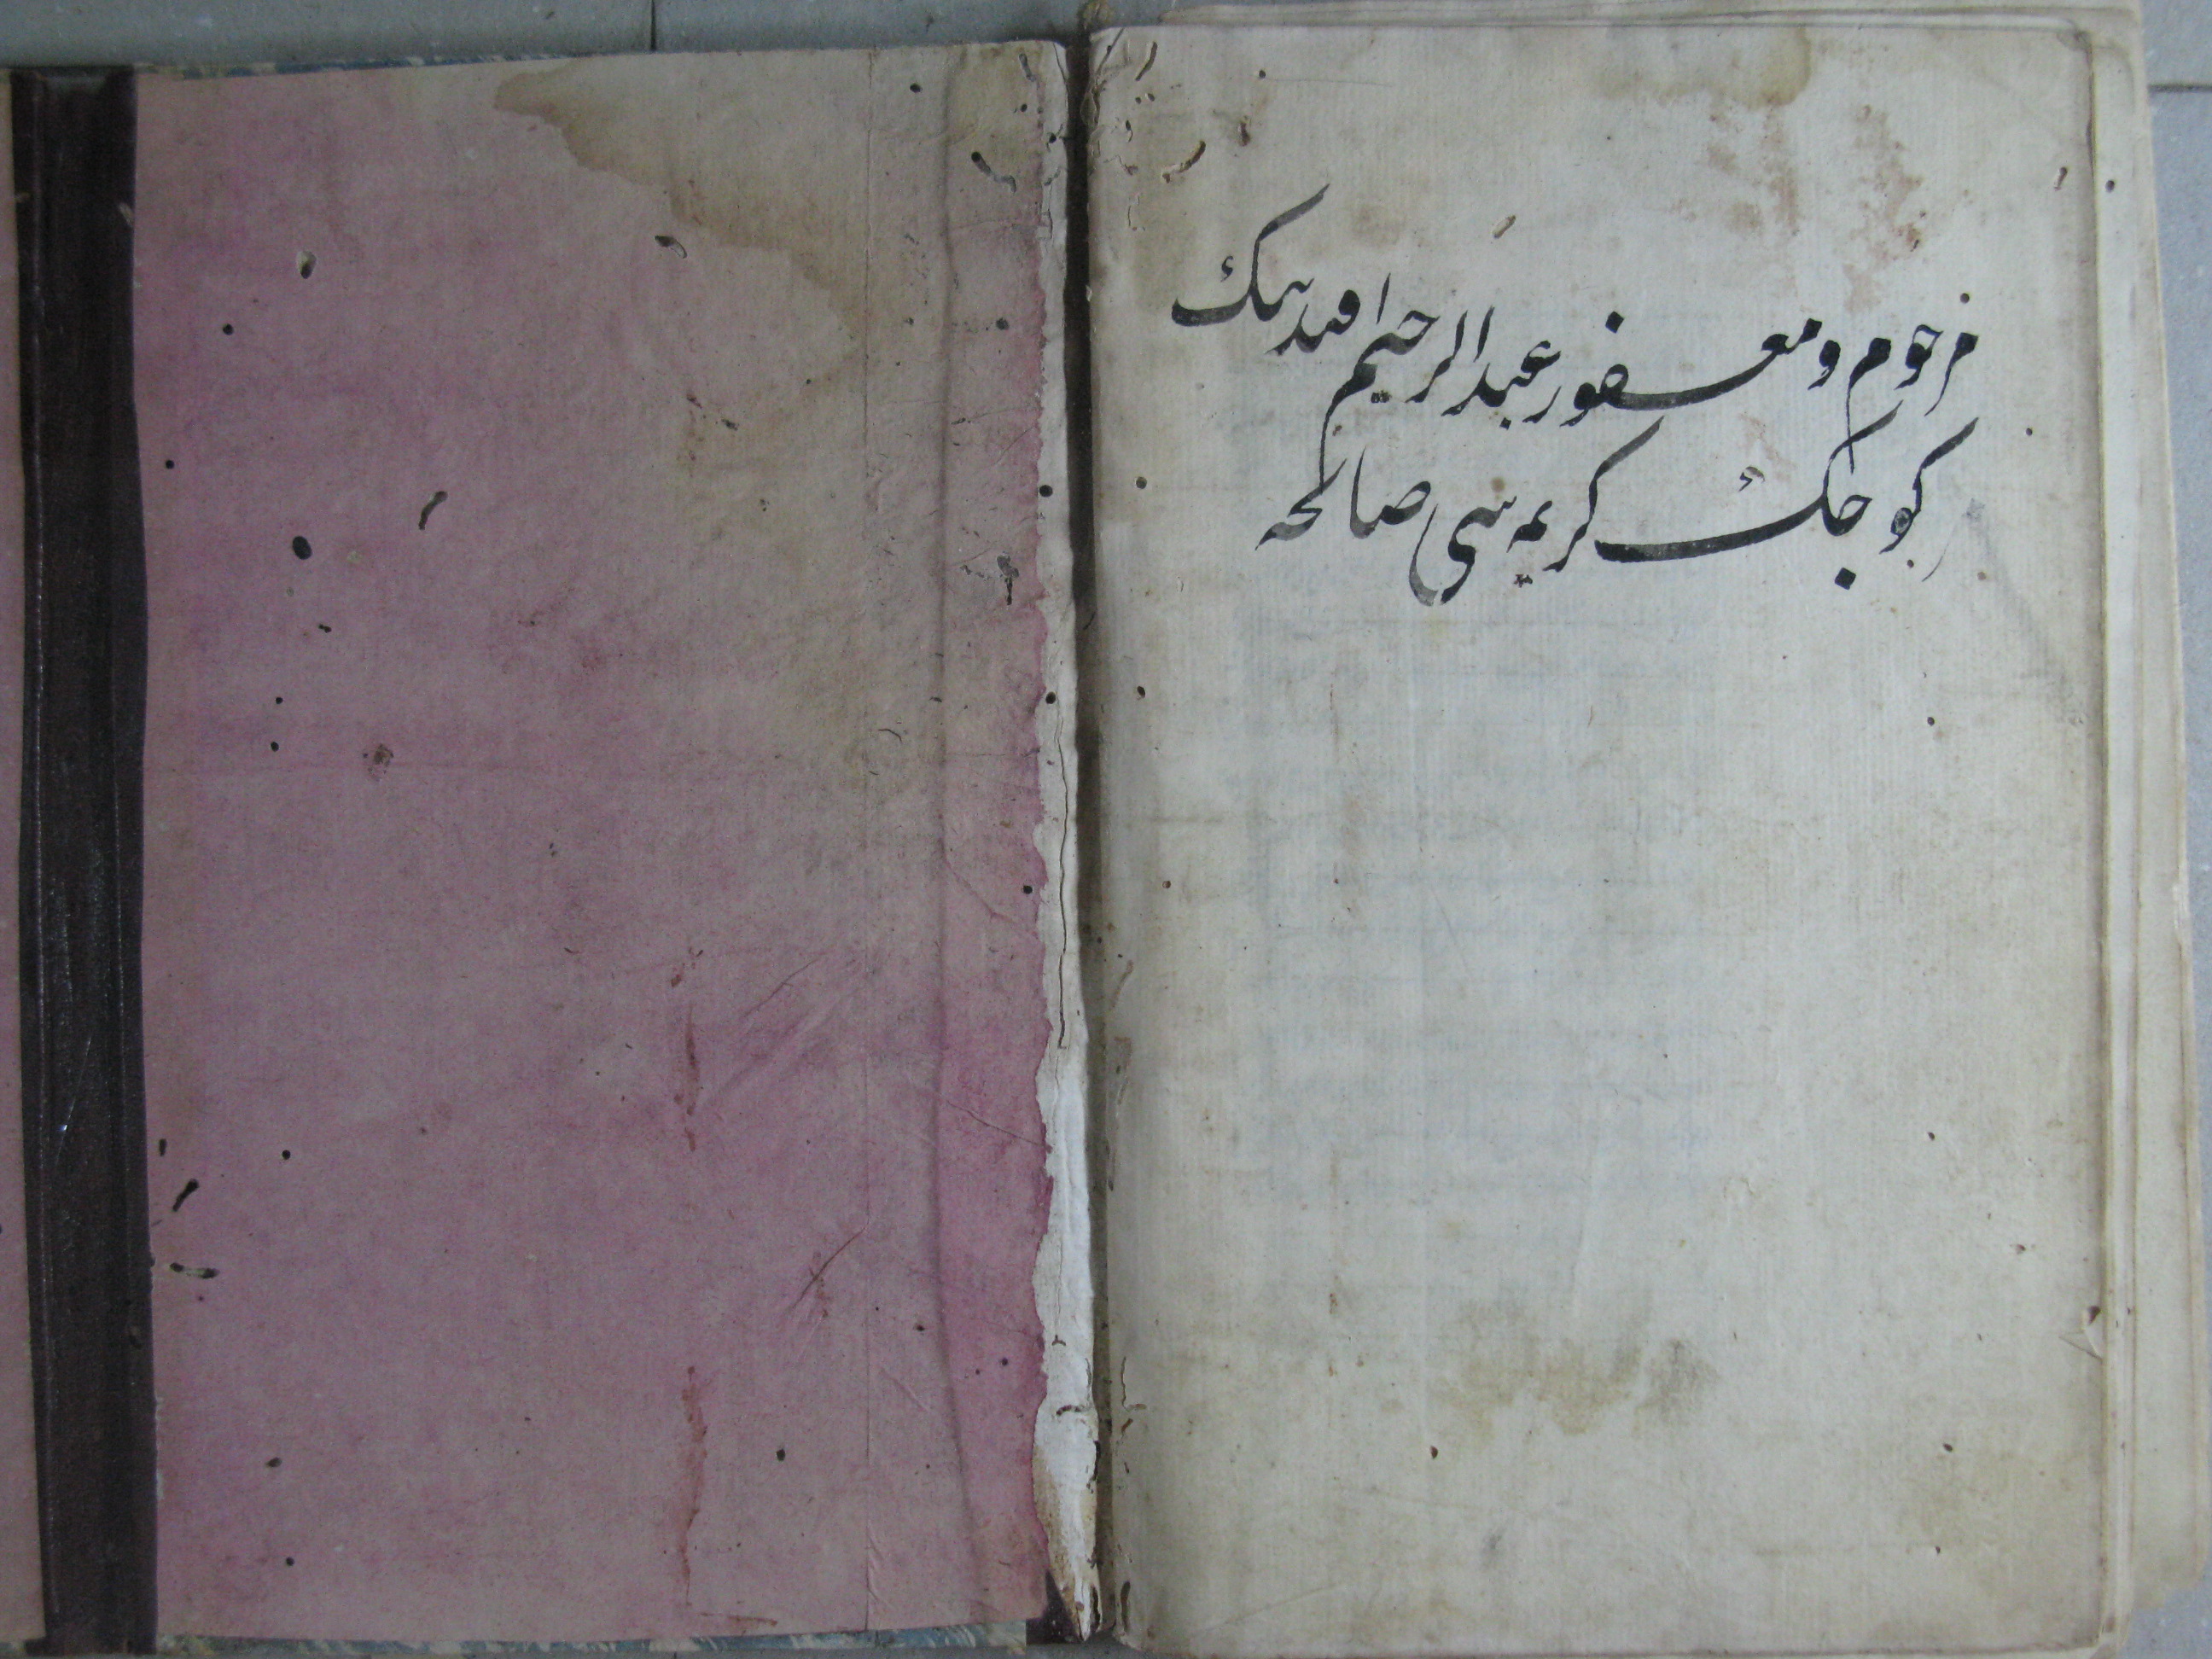 مرحوم ومغفور عبد الرحيم افندينك
كوجك كريمه سى صالحه